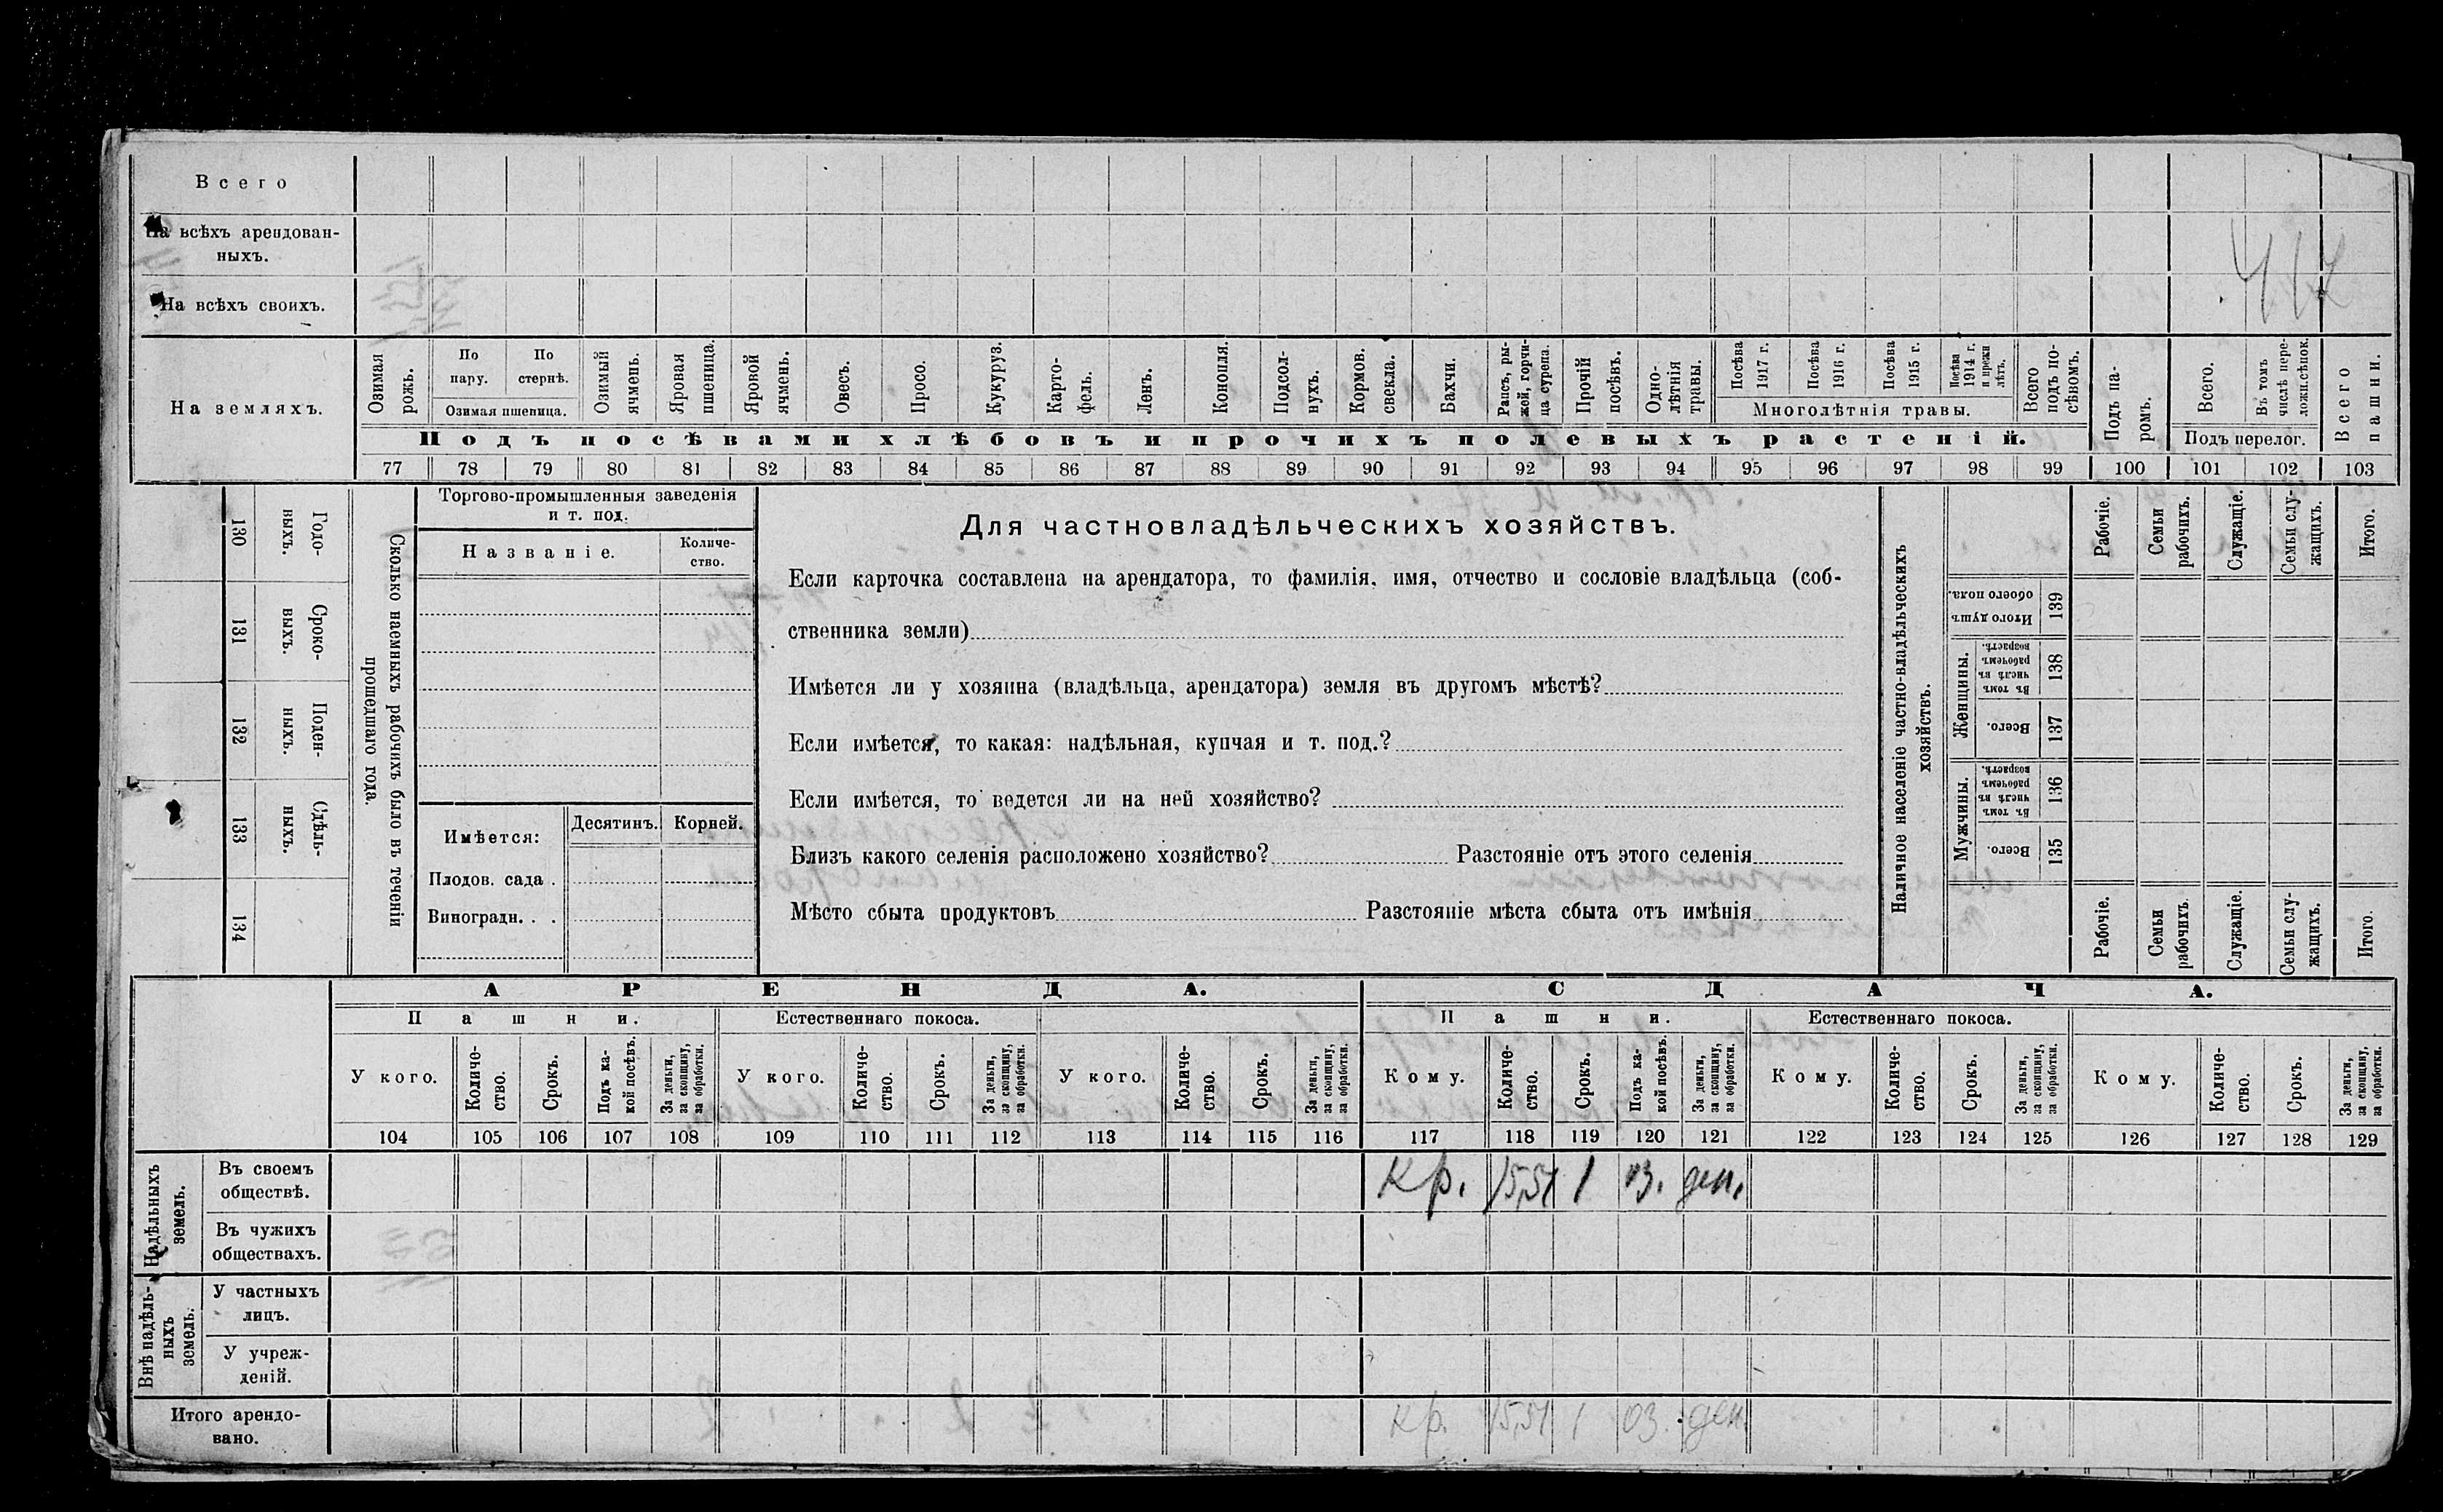 Всего
На всѣхъ арендован-
ныхъ.
417
На всѣхъ своихъ.
На земляхъ.
Озимая рожь.
По пару.
По стернѣ.
Озимая пшеница.
Озимый ячмень.
Яровая пшеница.
Яровой ячмень.
Овесъ.
Просо.
Кукуруз.
Карто-
фель.
Ленъ.
Конопля.
Подсол-
нухъ.
Кормов. свекла.
Бахчи.
Рапсъ, ры-
жей, горчи-
ца сурепа.
Прочій посѣвъ.
Одно-
лѣтнія травы.
Посѣва 1917 г.
Посѣва 1916 г.
Посѣва 1915 г.
Посѣва 1914 г. и прежн лѣтъ.
Многолѣтнія травы.
Всего подъ по-
сѣвомъ.
Подъ посѣвами хлѣбовъ и прочихъ полевыхъ растеній.
Подъ па-
ромъ.
Всего.
Въ томъ числѣ пере-
ложн.сѣнок.
Подъ перелог.
Всего пашни.
77 78 79 80 81 82 83 84 85 86 87 88 89 90 91 92 93 94 95 96 97 98 99 100 101 102 103
130 Годо-
выхъ.
131 Сроко-
выхъ.
132 Поден-
ныхъ.
133 Сдѣль-
ныхъ.
134
Сколько наемныхъ рабочихъ было въ теченіи
прошедшаго года.
Торгово-промышленныя заведенія
и т. под.
Названіе.
Количе-
ство.
Имѣется:
Десятинъ.
Корней.
Плодов. сада .
Виноградн. . .
Для частновладѣльческихъ хозяйствъ.
Если карточка составлена на арендатора, то фамилія, имя, отчество и сословіе владѣльца (соб-
ственника земли)
Имѣется ли у хозяина (владѣльца, арендатора) земля въ другомъ мѣстѣ?
Если имѣется, то какая: надѣльная, купчая и т. под.?
Если имѣется, то ведется ли на ней хозяйство?
Близъ какого селенія расположено хозяйство? Разстояніе отъ этого селенія
Мѣсто сбыта продуктовъ Разстояніе мѣста сбыта отъ имѣнія
Наличное населеніе частно-владѣльческихъ
хозяйствъ.
Рабочіе.
Семьи рабочихъ.
Служащіе.
Семьи слу-
жащихъ.
Итого.
Итого душъ обоего пола.
139
Женщины.
Въ томъ числѣ въ рабочемъ возрастѣ.
138
Всего.
137
Мужчины.
Въ томъ числѣ въ рабочемъ возрастѣ.
136
Всего.
135
Рабочіе.
Семьи рабочихъ.
Служащіе.
Семьи слу-
жащихъ.
Итого.
АРЕНДА.
СДАЧА.
Пашни.
Естественнаго покоса.
Пашни.
Естественнаго покоса.
У кого.
Количе-
ство.
Срокъ.
Подъ ка-
кой посѣвъ.
За деньги, за скопщину, за обработки.
У кого.
Количе-
ство.
Срокъ.
За деньги, за скопщину, за обработки.
У кого.
Количе-
ство.
Срокъ.
За деньги, за скопщину, за обработки.
Кому.
Количе-
ство.
Срокъ.
Подъ ка-
кой посѣвъ.
За деньги, за скопщину, за обработки.
Кому.
Количе-
ство.
Срокъ.
За деньги, за скопщину, за обработки.
Кому.
Количе-
ство.
Срокъ.
За деньги, за скопщину, за обработки.
104 105 106 107 108 109 110 111 112 113 114 115 116 117 118 119 120 121 122 123 124 125 126 127 128 129
Надѣльныхъ земель.
Въ своемъ
обществѣ.
Кр. 15,51 1 оз. ден.
Въ чужихъ
обществахъ.
Внѣ надѣль-
ныхъ земель.
У частныхъ
лицъ.
У учреж-
деній.
Итого арендо-
вано.
Кр. 15,51 1 оз. ден.